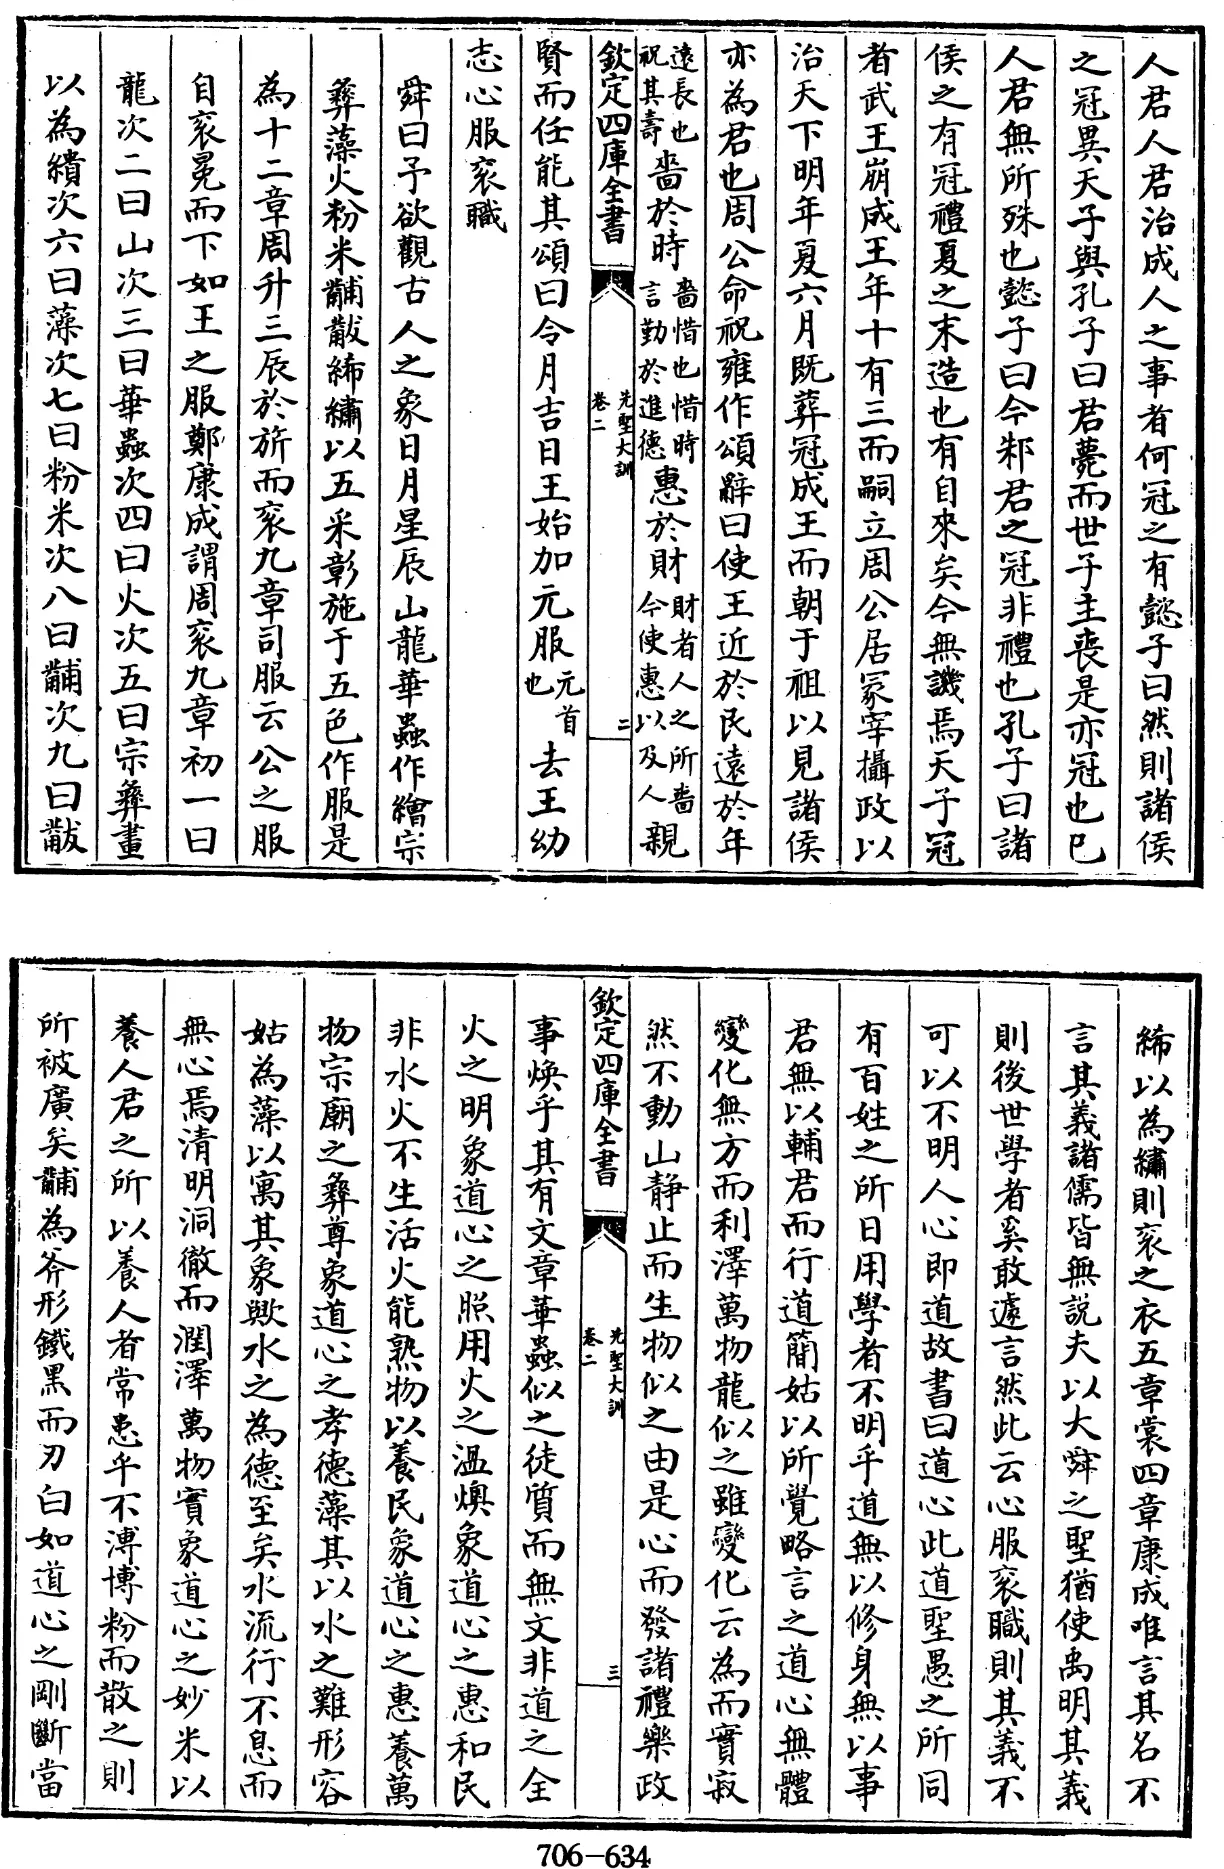 人君人君治成人之事者何冠之有懿子曰然則諸侯
之冠異天子與孔子曰君薨而世子主喪是亦冠也已
人君無所殊也懿子曰今邾君之冠非禮也孔子曰諸
侯之有冠禮夏之末造也有自來矣今無譏焉天子冠
者武王崩成王年十有三而嗣立周公居冢宰攝政以
治天下明年夏六月既葬冠成王而朝于祖以見諸侯
亦為君也周公命祝雍作頌辭曰使王近於民遠於年
遠長也祝其壽嗇於時嗇惜也惜時言勤於進德惠於財財者人之所嗇今使惠以及人親
欽定四庫全書 先聖大訓 卷二 二
賢而任能其頌曰令月吉日王始加元服元首也去王幼
志心服衮職
舜曰予欲觀古人之象日月星辰山龍華蟲作繪宗
彝藻火粉米黼黻絺繡以五采彰施于五色作服是
為十二章周升三辰於旂而衮九章司服云公之服
自衮冕而下如王之服鄭康成謂周衮九章初一曰
龍次二曰山次三曰華蟲次四曰火次五曰宗彝畫
以為繢次六曰藻次七曰粉米次八曰黼次九曰黻
絺以為繡則衮之衣五章裳四章康成唯言其名不
言其義諸儒皆無説夫以大舜之聖猶使禹明其義
則後世學者奚敢遽言然此云心服衮職則其義不
可以不明人心即道故書曰道心此道聖愚之所同
有百姓之所日用學者不明乎道無以修身無以事
君無以輔君而行道簡姑以所覺略言之道心無體
變化無方而利澤萬物龍似之雖變化云為而實寂
然不動山靜止而生物似之由是心而發諸禮樂政
欽定四庫全書 先聖大訓 卷二 三
事煥乎其有文章華蟲似之徒質而無文非道之全
火之明象道心之照用火之溫燠象道心之惠和民
非水火不生活火能熟物以養民象道心之惠養萬
物宗廟之彝尊象道心之孝德藻其以水之難形容
姑為藻以寓其象歟水之為德至矣水流行不息而
無心焉清明洞徹而潤澤萬物實象道心之妙米以
養人君之所以養人者常患乎不溥博粉而散之則
所被廣矣黼為斧形鐵黑而刃白如道心之剛斷當
706-634